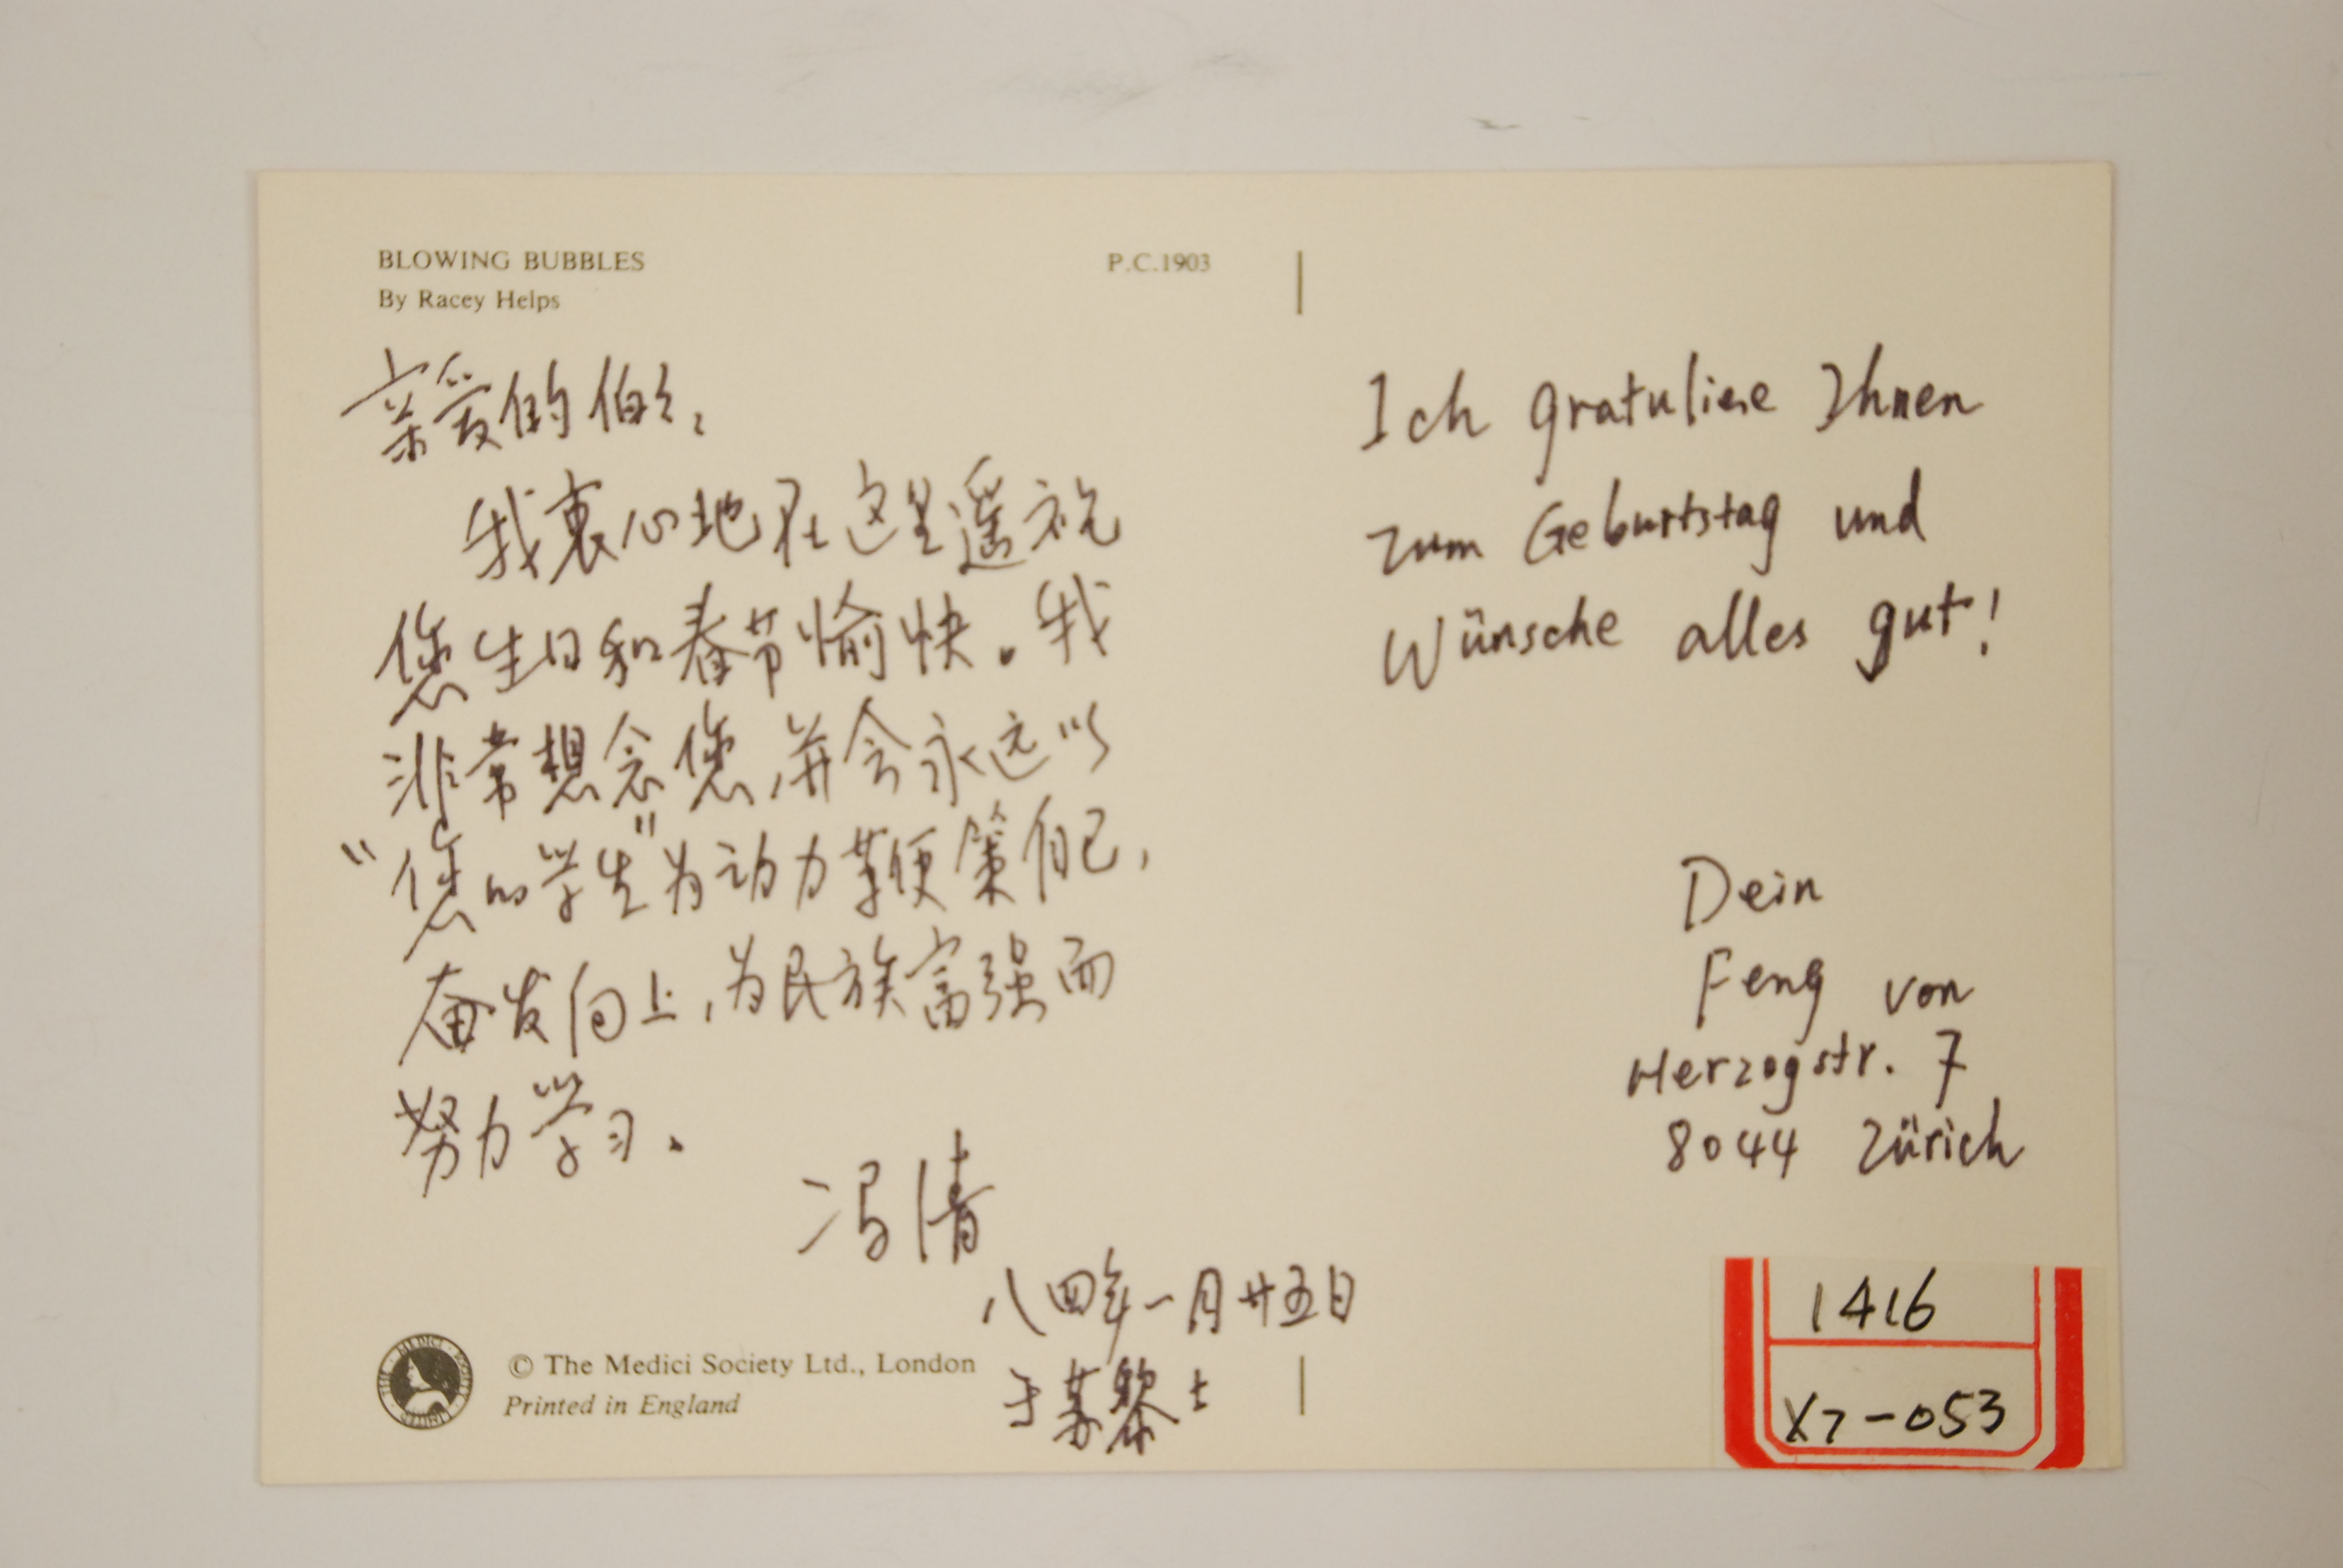 BLOWING BUBBLES
By Racey Helps
P.C.1903
亲爱的伯伯:
我衷心地在这里遥祝
您生日和春节愉快。我
非常想念您,并会永远以
“您的学生”为动力鞭策自己,
奋发向上,为民族富强而
努力学习。
冯清
八四年一月廿五日
于苏黎士
© The Medici Society Ltd., London
Printed in England
THE MEDICI SOCIETY LIMITED
Ich gratuliere Ihnen
zum Geburtstag und
Wünsche alles gut!
Dein
Feng von
Herzogstr. 7
8044 Zürich
1416
X7-053